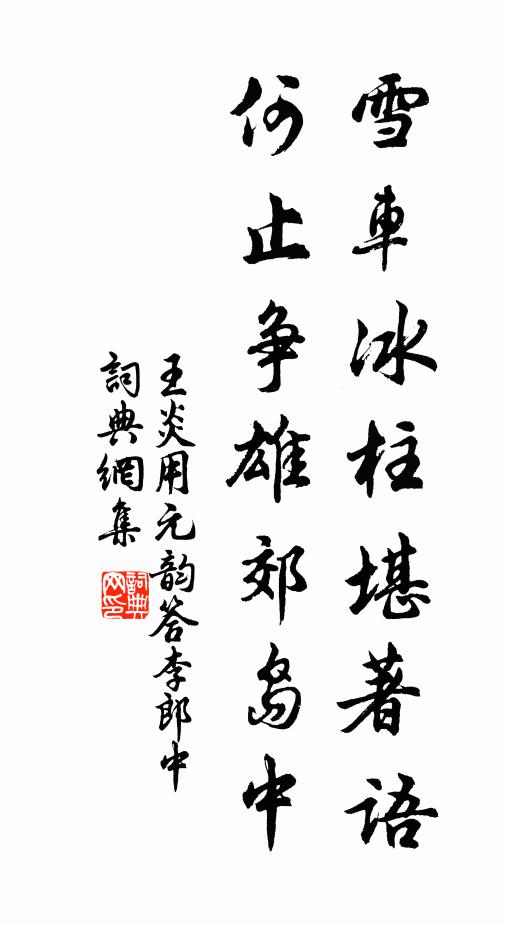 雪車冰柱堪著語
何止争雄郊島中
王炎用元韵答李郎中
詞典網集
詞典网印